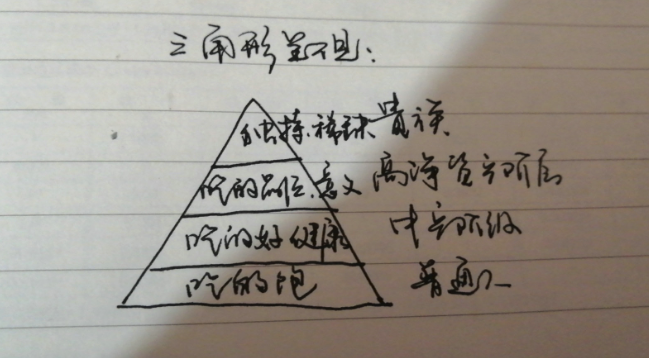 三角形呈现:
独特.稀缺 贵族
吃的品位.意义 高净资产阶层
吃的好 健康 中产阶级
吃的饱 普通人